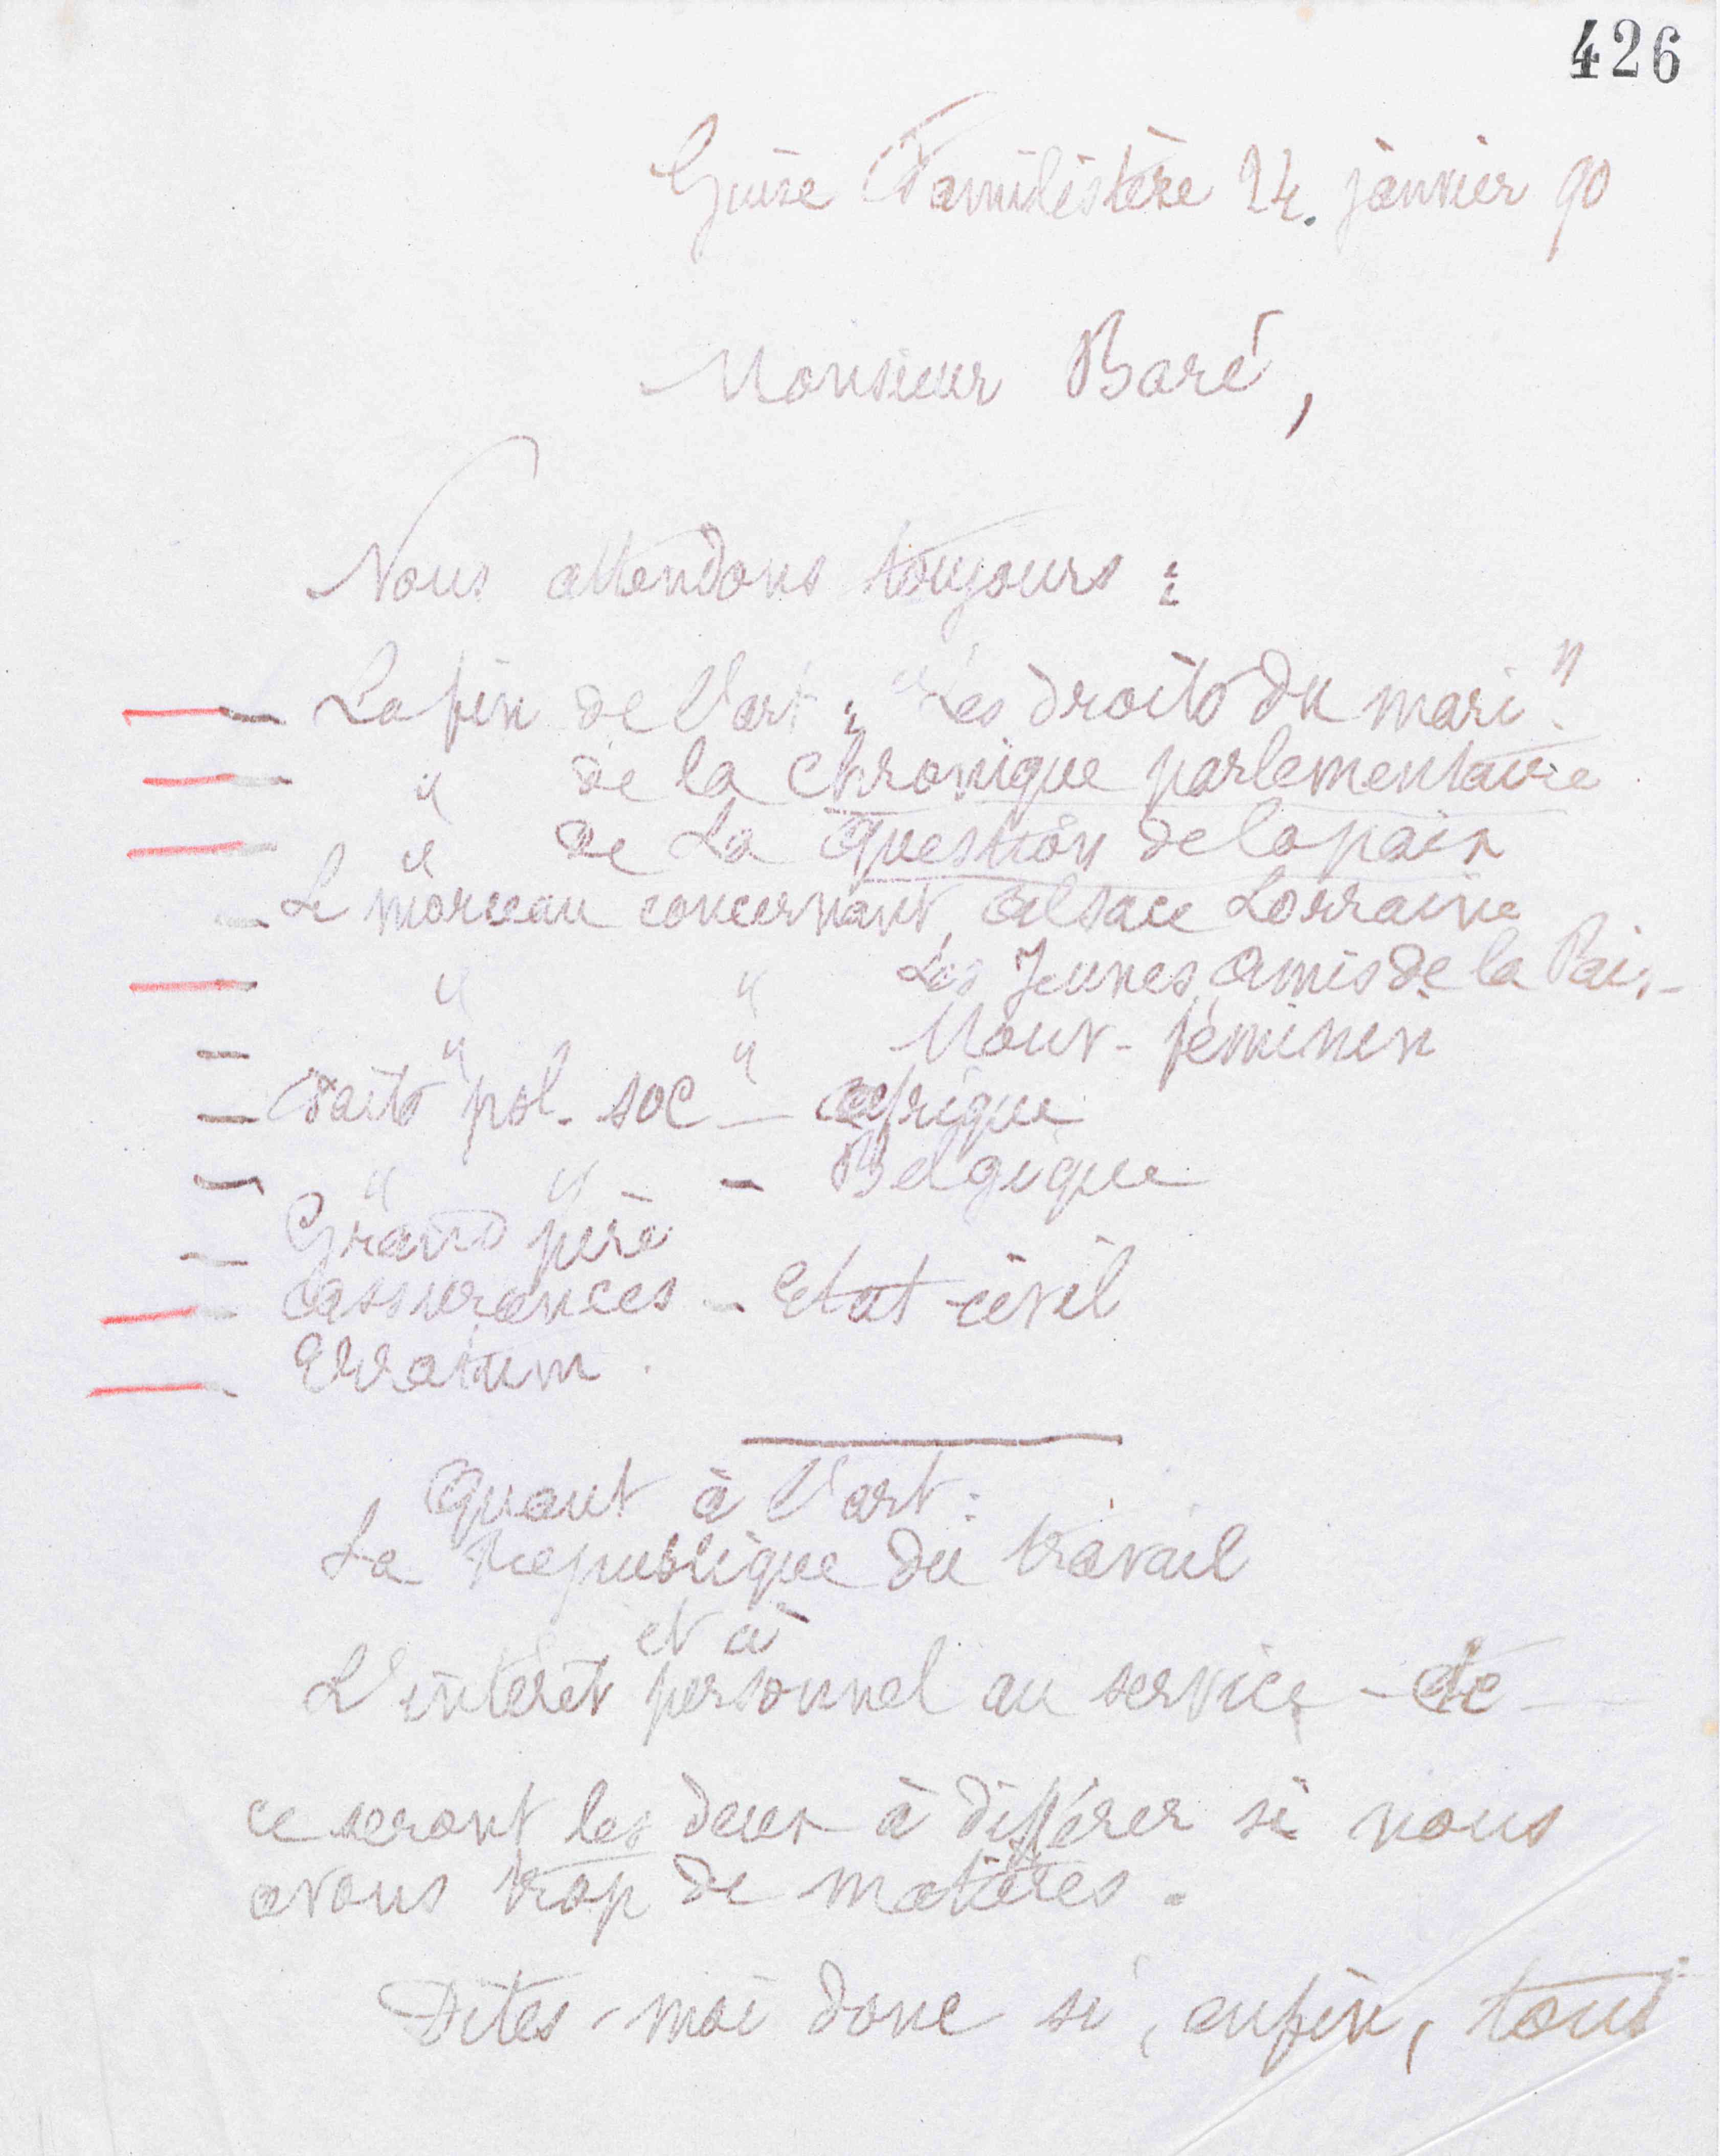 426
Guise Familistère 24. janvier 90
Monsieur Baré,
Nous attendons toujours :
— La fin de l'art : "Les droits du mari".
— " de la Chronique parlementaire
— " de La Question de la paix
— Le morceau concernant Alsace Lorraine
— " " Les Jeunes Amis de la Paix
— " " Mouv- féminin
— Faits pol- soc — Afrique
— " " — Belgique
— Grand père
— Assurances — Etat-civil
— Erratum.
Quant à l'art :
La République du travail
et à
L'intérêt personnel au service - etc —
ce seront les deux à différer si nous
avons trop de matières.
Dites-moi donc si, enfin, tout